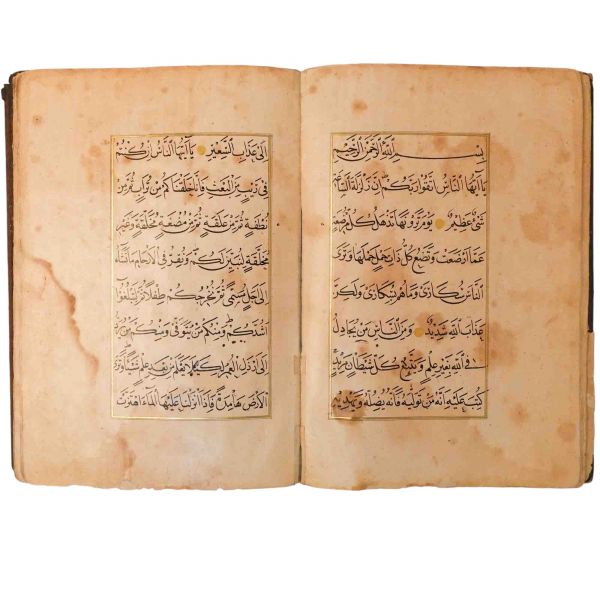 بِسْمِ اللَّهِ الرَّحْمَنِ الرَّحِيمِ
يَا أَيُّهَا النَّاسُ اتَّقُوا رَبَّكُمْ إِنَّ زَلْزَلَةَ السَّاعَةِ
شَيْءٌ عَظِيمٌ يَوْمَ تَرَوْنَهَا تَذْهَلُ كُلُّ مُرْضِعَةٍ
عَمَّا أَرْضَعَتْ وَتَضَعُ كُلُّ ذَاتِ حَمْلٍ حَمْلَهَا وَتَرَى
النَّاسَ سُكَارَى وَمَا هُمْ بِسُكَارَى وَلَكِنَّ
عَذَابَ اللَّهِ شَدِيدٌ وَمِنَ النَّاسِ مَنْ يُجَادِلُ
فِي اللَّهِ بِغَيْرِ عِلْمٍ وَيَتَّبِعُ كُلَّ شَيْطَانٍ مَرِيدٍ
كُتِبَ عَلَيْهِ أَنَّهُ مَنْ تَوَلَّاهُ فَأَنَّهُ يُضِلُّهُ وَيَهْدِيهِ
إِلَى عَذَابِ السَّعِيرِ يَا أَيُّهَا النَّاسُ إِنْ كُنْتُمْ
فِي رَيْبٍ مِنَ الْبَعْثِ فَإِنَّا خَلَقْنَاكُمْ مِنْ تُرَابٍ ثُمَّ مِنْ
نُطْفَةٍ ثُمَّ مِنْ عَلَقَةٍ ثُمَّ مِنْ مُضْغَةٍ مُخَلَّقَةٍ وَغَيْرِ
مُخَلَّقَةٍ لِنُبَيِّنَ لَكُمْ وَنُقِرُّ فِي الْأَرْحَامِ مَا نَشَاءُ
إِلَى أَجَلٍ مُسَمًّى ثُمَّ نُخْرِجُكُمْ طِفْلًا ثُمَّ لِتَبْلُغُوا
أَشُدَّكُمْ وَمِنْكُمْ مَنْ يُتَوَفَّى وَمِنْكُمْ مَنْ يُرَدُّ
إِلَى أَرْذَلِ الْعُمُرِ لِكَيْلَا يَعْلَمَ مِنْ بَعْدِ عِلْمٍ شَيْئًا وَتَرَى
الْأَرْضَ هَامِدَةً فَإِذَا أَنْزَلْنَا عَلَيْهَا الْمَاءَ اهْتَزَّتْ